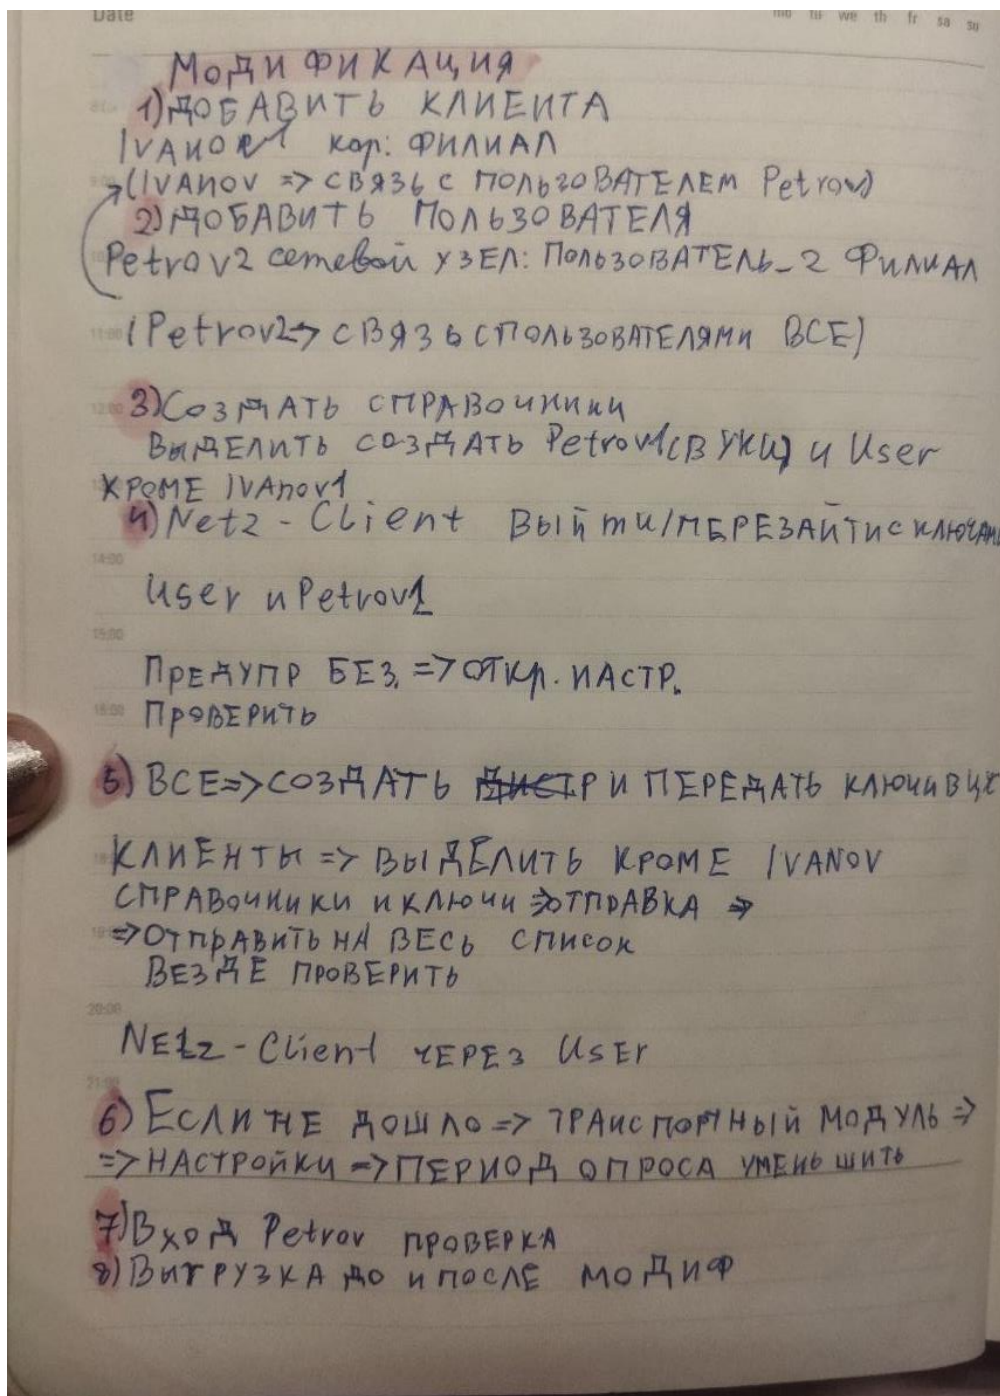 Date mo tu we th fr sa su
МОДИФИКАЦИЯ
1) ДОБАВИТЬ КЛИЕНТА
IVANOV1 кор: ФИЛИАЛ
(IVANOV => СВЯЗЬ С ПОЛЬЗОВАТЕЛЕМ Petrov)
2) ДОБАВИТЬ ПОЛЬЗОВАТЕЛЯ
Petrov2 сетевой УЗЕЛ: ПОЛЬЗОВАТЕЛЬ_2 ФИЛИАЛ
11:00 (Petrov2 => СВЯЗЬ С ПОЛЬЗОВАТЕЛЯМИ ВСЕ)
12:00 3) СОЗДАТЬ СПРАВОЧНИКИ
ВЫДЕЛИТЬ СОЗДАТЬ Petrov1 (В УКЦ) и User
КРОМЕ IVAnov1
4) Net2 - Client ВЫЙТИ/ПЕРЕЗАЙТИ С КЛЮЧАМИ
14:00
User и Petrov1
15:00
ПРЕДУПР БЕЗ. => ОТКР. НАСТР.
16:00 ПРОВЕРИТЬ
5) ВСЕ => СОЗДАТЬ И ПЕРЕДАТЬ КЛЮЧИ В ЦУС
КЛИЕНТЫ => ВЫДЕЛИТЬ КРОМЕ IVANOV
СПРАВОЧНИКИ И КЛЮЧИ => ОТПРАВКА =>
=> ОТПРАВИТЬ НА ВЕСЬ СПИСОК
ВЕЗДЕ ПРОВЕРИТЬ
20:00
NEt2 - Client ЧЕРЕЗ USEr
21:00
6) ЕСЛИ НЕ ДОШЛО => ТРАНСПОРТНЫЙ МОДУЛЬ =>
=> НАСТРОЙКИ => ПЕРИОД ОПРОСА УМЕНЬШИТЬ
7) ВХОД Petrov ПРОВЕРКА
8) ВЫГРУЗКА ДО И ПОСЛЕ МОДИФ